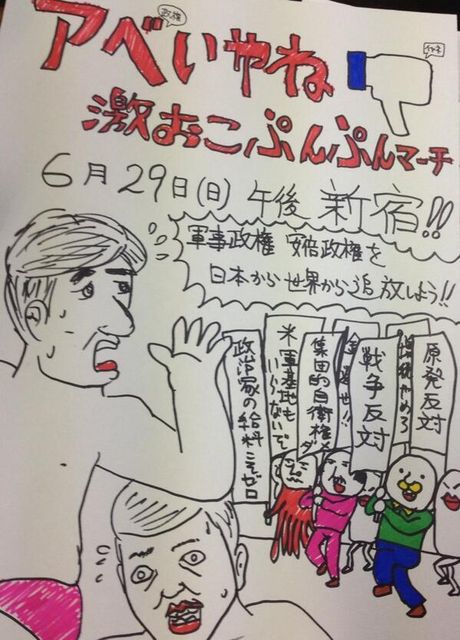 政権
アベいやね
イイネ
激おこぷんぷんマーチ
6月29日(日)午後 新宿!!
軍事政権 安倍政権を
日本から世界から追放しよう!!
原発反対
やめろ
戦争反対
集団的自衛権
米軍基地もいらないで
政治家の給料こそゼロ